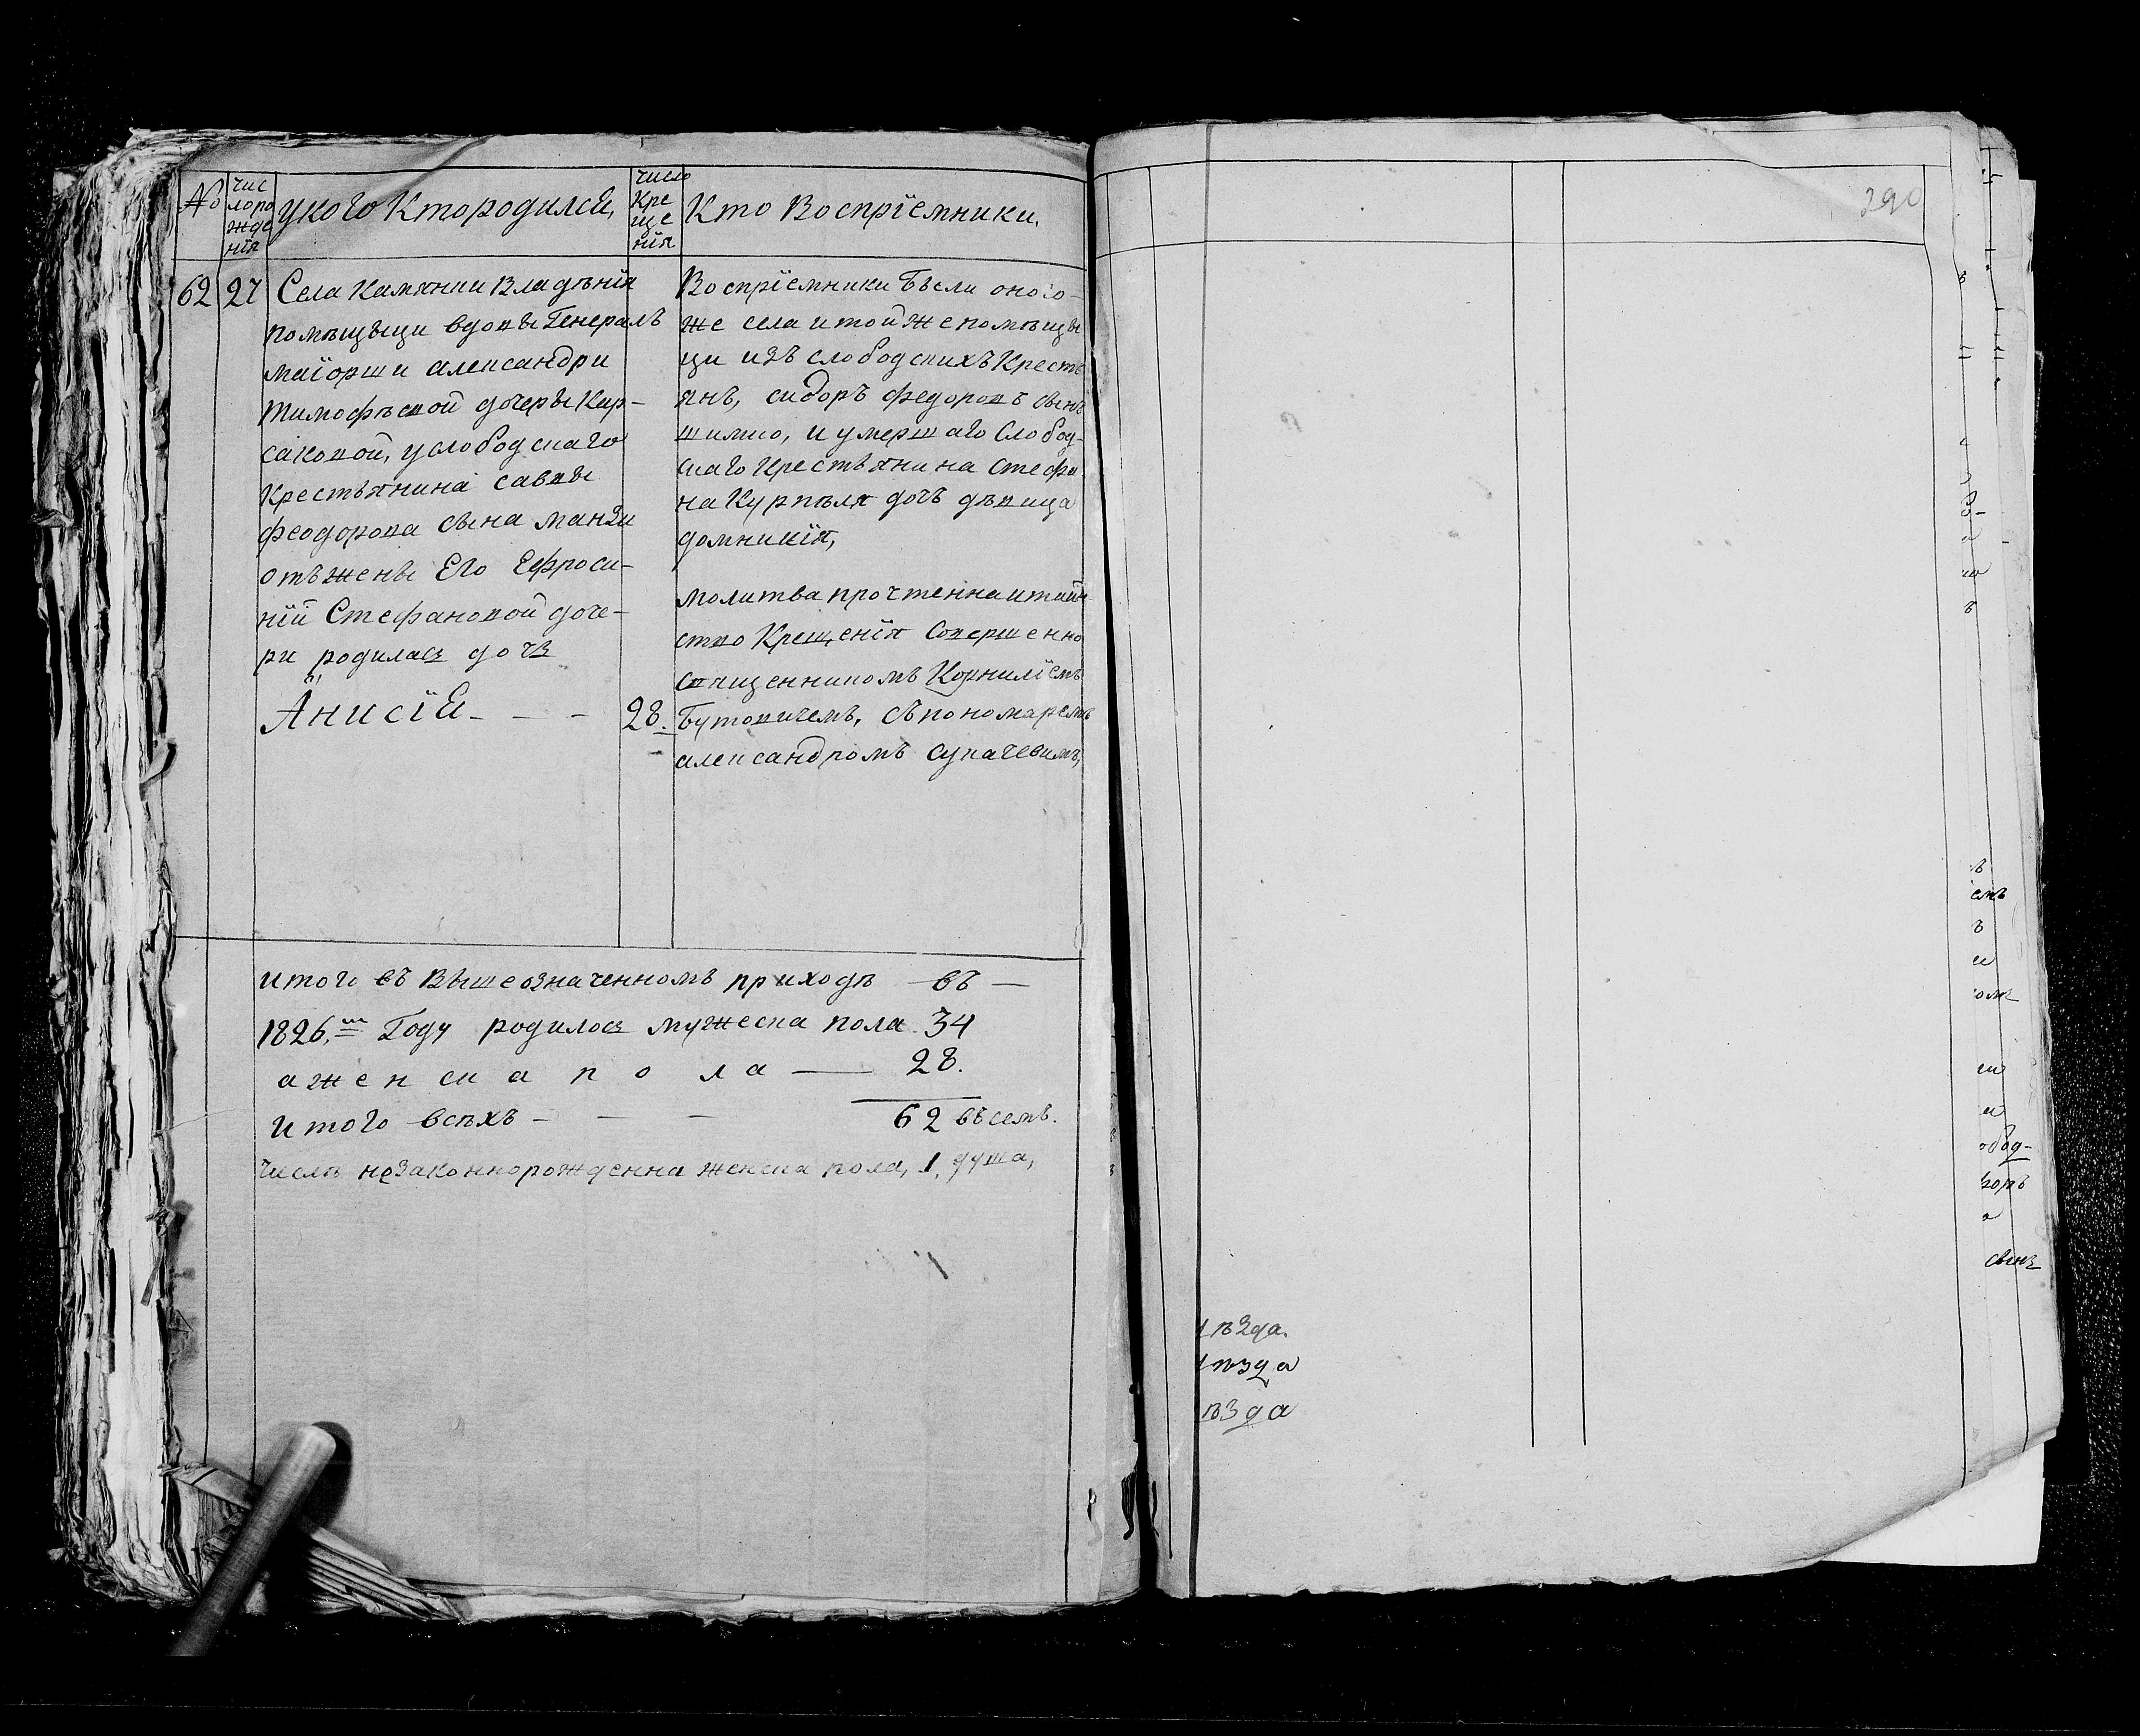 №
чис
лоро
жде
нїя
укого Кто родился,
число
Кре
ще
нїя
Кто Воспрїемники.
290
62 27 Села Камянки Владѣнїя
помѣщыци вдовы Генералъ
маїорши александри
тимофѣевой дочеры Кор-
саковой, услободскаго
Крестьянина саввы
феодорова сына манзи
отъжены Его Ефроси-
нїи Стефановой доче-
ри родилась дочь
Анисїя - - - 28.
Воспрїемники Были оного-
же села итойже помѣщы
ци изъ слободскихъ Кресть
янъ, сидоръ федоровъ сынъ
шимко, и умершаго Слобод-
скаго Крестьянина Стефа
на Курпѣля дочь дѣвица
домникїя,
молитва прочтенна итаин-
ство Крещенїя Совершенно
священникомъ Корнилїемъ
Бутовичемъ, съпономаремъ
александромъ
итого въ Вышеозначенномъ приходѣ въ —
1826.м Году родилось мужеска пола 34
а женска пола — 28.
итого всѣхъ - — — 62 въсемъ.
числѣ незаконнорожденна женска пола, 1. душа,
ѣзда.
ѣзда
ѣзда
ъ
емъ
ъ
и
омъ
и
обод-
воръ
а
сынъ